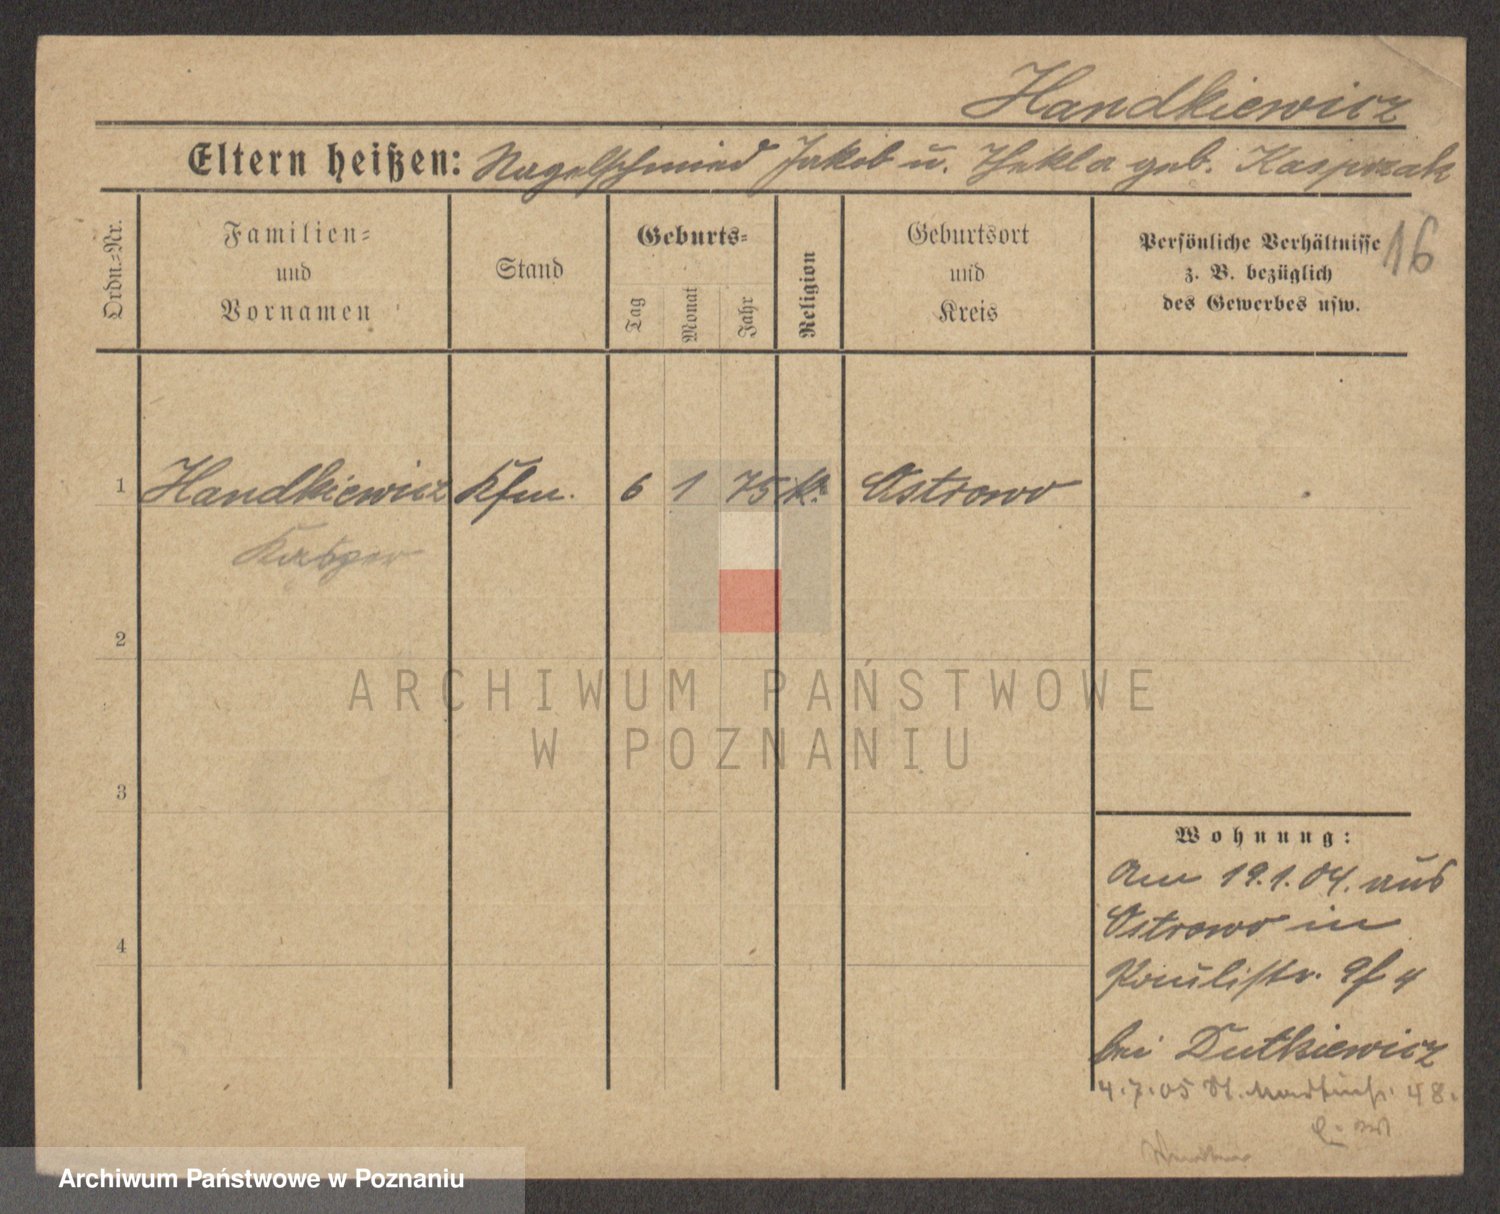 Handkiewicz
Eltern heißen: Nagelschmied Jakob u. Thekla geb. Kasprzak
Ordn.-Nr.
Familien-
und
Vornamen
Stand
Geburts-
Tag
Monat
Jahr
Religion
Geburtsort
und
Kreis
Persönliche Verhältnisse
z. B. bezüglich
des Gewerbes usw.
16
1 Handkiewicz Kfm. 6 1 75 k. Ostrowo
Kasper
2
3
4
ARCHIWUM PAŃSTWOWE
W POZNANIU
Wohnung:
Am 19.1.04. aus
Ostrowo in
Paulistr. 9 4
bei Dutkiewicz
4.7.05 St. 48.
Archiwum Państwowe w Poznaniu